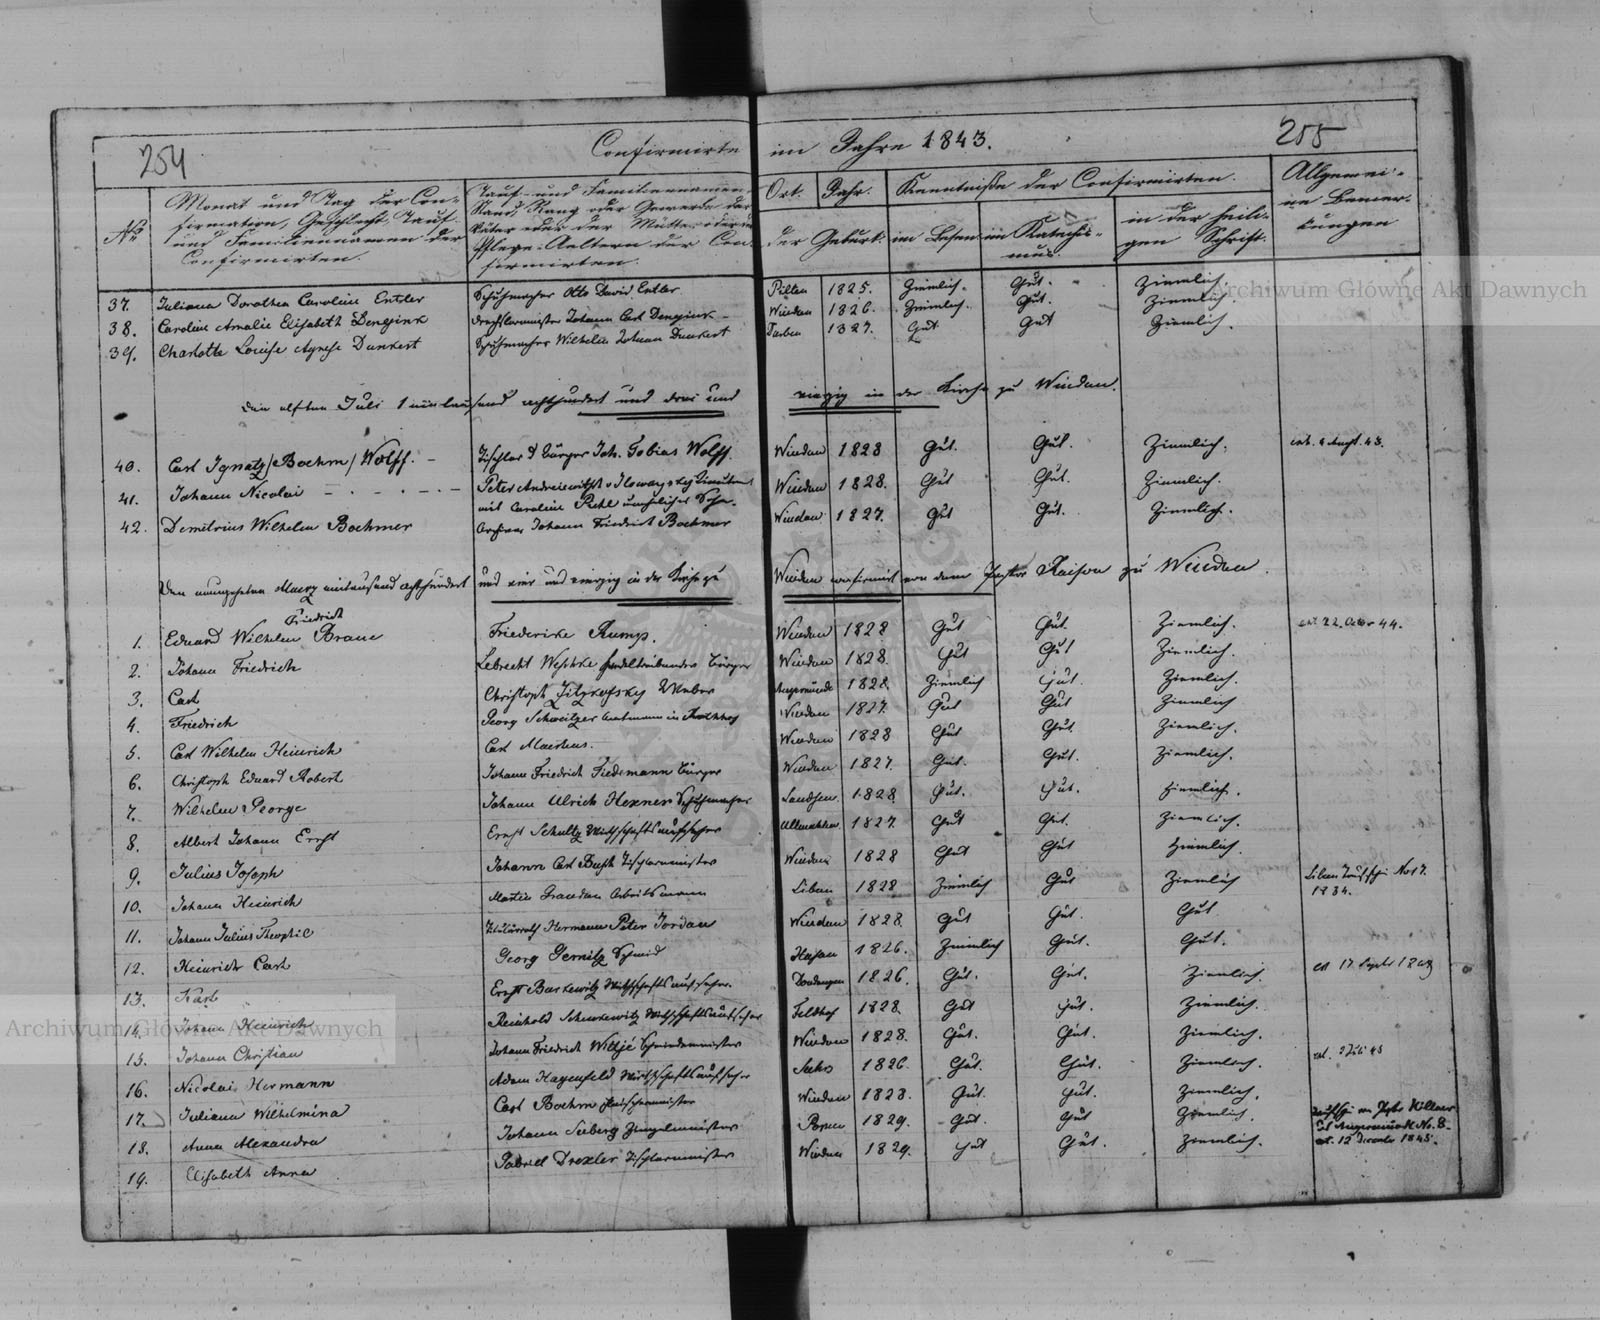 254
Confirmirte im Jahre 1843.
255
No
Monat und Tag der Confirmation, Geschlecht, Tauf- und Familiennamen der Confirmirten.
Tauf- und Familiennamen, Stand, Rang oder Gewerbe der Väter oder der Mütter oder Pflege-Aeltern der Confirmirten.
Ort. Jahr.
der Geburt.
Kenntniße der Confirmirten.
im Lesen
im Katechismus.
in der heiligen Schrift.
Allgemeine Bemerkungen
37. Juliana Dorothea Caroline Entler Schuhmacher Otto David Entler Pilten 1825. Ziemlich. Gut. Ziemlich.
38. Caroline Amalie Elisabeth Dengink Drechslermeister Johann Carl Dengink Windau 1826. Ziemlich. Gut. Ziemlich.
39. Charlotte Louise Agnese Dunkert Schuhmacher Wilhelm Johann Dunkert 1827. Gut Gut Ziemlich.
Den elften Juli Eintausend achthundert und drei und vierzig in der Kirche zu Windau.
40. Carl Ignatz /Boehm/ Wolff. Tischler & Bürger Joh. Tobias Wolff. Windau 1828 Gut. Gut. Ziemlich. ext. 4 Augt. 43.
41. Johann Nicolai Peter
mit Caroline unehelicher Sohn. Windau 1828. Gut Gut. Ziemlich.
42. Demetrius Wilhelm Boehmer Johann Friedrich Boehmer Windau 1827. Gut Gut. Ziemlich.
Den neunzehten Maerz eintausend achthundert und vier und vierzig in der Kirche zu Windau confirmirt von dem Pastor Raison zu Windau.
Friedrich
1. Eduard Wilhelm Braue Friedericke Rump. Windau 1828 Gut Gut. Ziemlich. ext. 22 Octbr 44.
2. Johann Friedrich Lebrecht Weschke handeltreibender Bürger Windau 1828. Gut Gut Ziemlich.
3. Carl Christoph Weber Angermünde 1828. Ziemlich Gut. Ziemlich.
4. Friedrich Georg Schweitzer Amtmann in Windau 1827. Gut Gut Ziemlich
5. Carl Wilhelm Heinrich Carl Maertens. Windau 1828 Gut Gut. Ziemlich.
6. Christoph Eduard Robert Johann Friedrich Fiedemann Bürger Windau 1827. Gut. Gut. Ziemlich.
7. Wilhelm George Johann Ulrich Hexner Schuhmacher Landsen 1828. Gut. Gut. Ziemlich.
8. Albert Johann Ernst Ernst Schultz Wirthschaftsaufseher 1827. Gut Gut. Ziemlich.
9. Julius Joseph Johann Carl Busch Tischlermeister Windau 1828 Gut Gut Ziemlich.
10. Johann Heinrich Martin Arbeitsmann Libau 1828 Ziemlich Gut Ziemlich Libau Taufschein No 17. 1834.
11. Johann Julius Theophil Titulärrath Hermann Peter Jordan Windau 1828. Gut Gut. Gut
12. Heinrich Carl Georg Gernitz Schmid 1826. Ziemlich Gut. Gut.
13. Karl Ernst Barkewitz Wirthschaftsaufseher. 1826. Gut. Gut. Ziemlich. ext 17 Septr
14. Johann Heinrich Reinhold Wirthschaftsaufseher Feldhof 1828. Gut Gut. Ziemlich.
15. Johann Christian Johann Friedrich Wiltjé Schneidermeister Windau 1828. Gut. Gut. Ziemlich.
16. Nicolai Hermann Adam Hagenfeld Wirthschaftsaufseher 1826. Gut. Gut. Ziemlich. ext. 9 Juli 45
17. Juliana Wilhelmina Carl Boehm Fleischermeister Windau 1828. Gut. Gut. Ziemlich.
18. Anna Alexandra Johann Seeberg Ziegelmeister Popen 1829. Gut. Gut Ziemlich. Taufschein von Pastor Hillner zu Angermünde No. 8. ext. 12 Decembr 1845.
19. Elisabeth Anna Gabriel Drexler Tischlermeister Windau 1829. Gut Gut. Ziemlich.
Archiwum Główne Akt Dawnych
Archiwum Główne Akt Dawnych